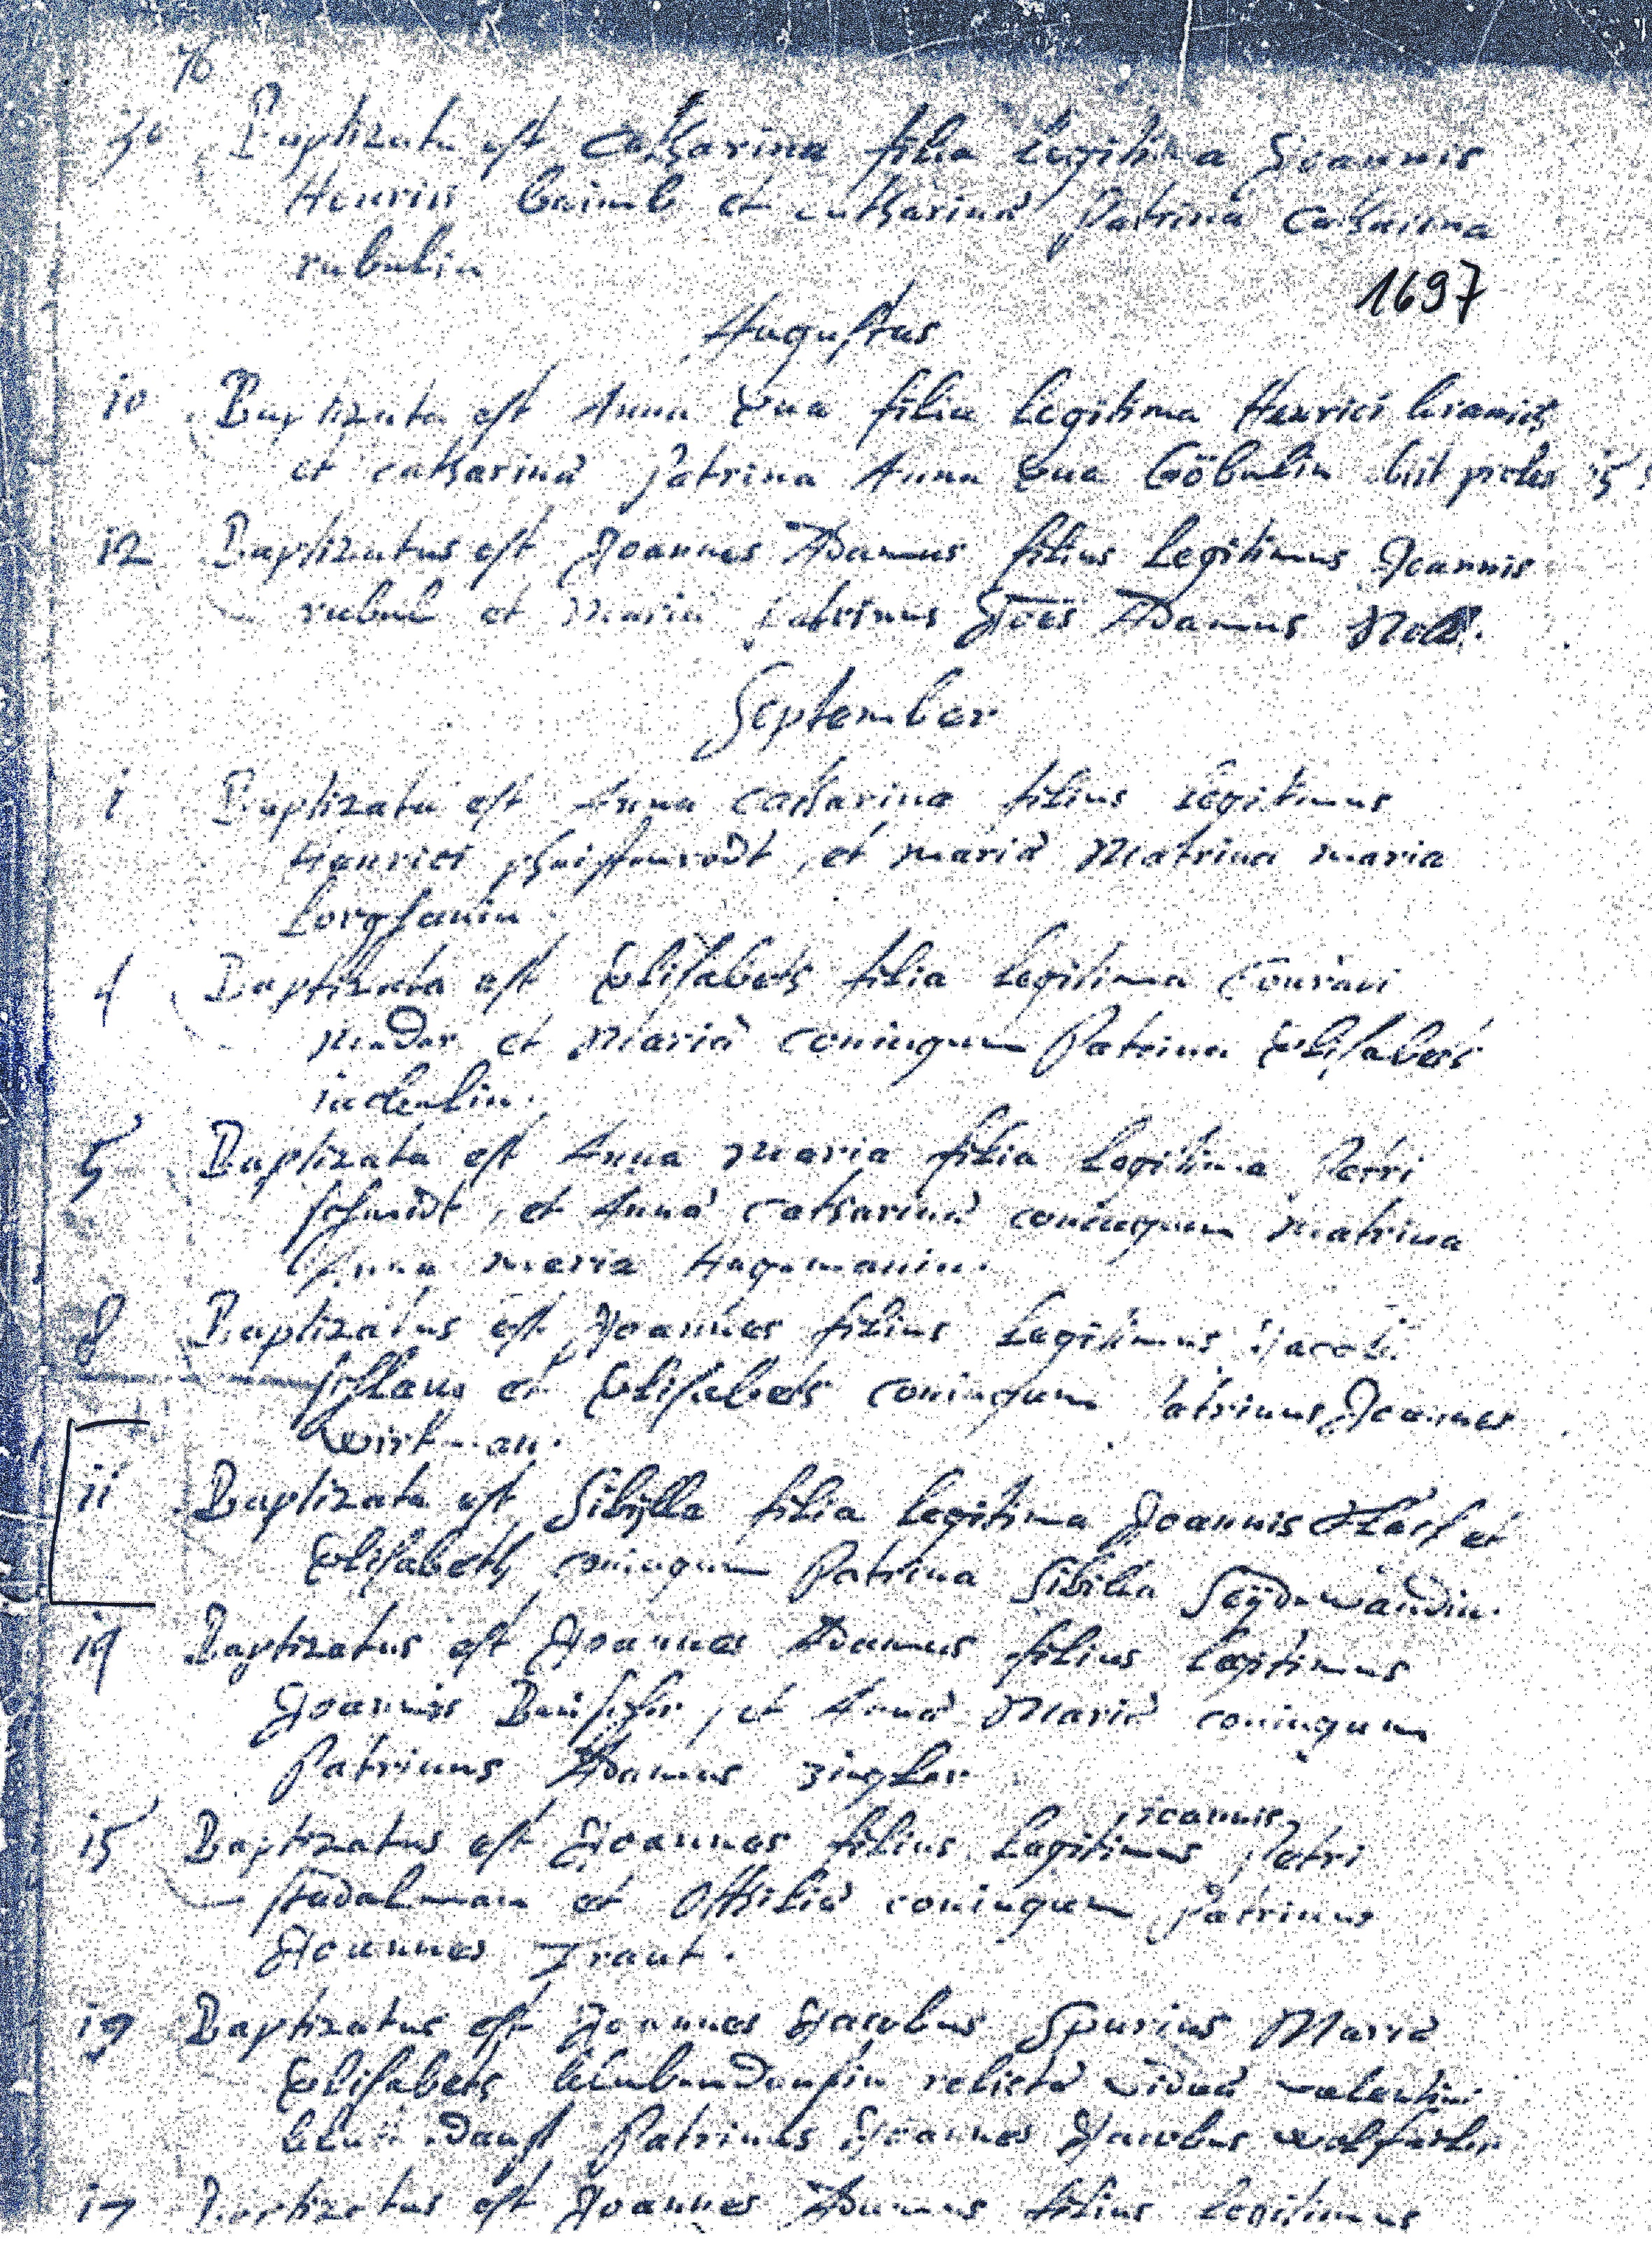 76
30 Baptizata est Catharina filia legitima Joannis
Henrici et catharinā Patrina Catharina
rubulin
1697
Augustus
10 Baptizata est Anna Eua filia Legitima Henrici
et catharinā Patrina Anna Eua Göbulin obiit proles 15
12 Baptizatus est Joannes Adamus filius Legitimus Joannis
rubul et Maria Patrinus Joēs Adamus
September
1 Baptizata est Anna Catharina filius Legitimus
Henrici et mariā Matrina maria
4 Baptizata est Elisabeth filia Legitima Conradi
et Mariā coniugum Patrina Elisabeth
5 Baptizata est Anna Maria filia Legitima Petri
schmidt, et Annā Catharinā coniugum Matrina
Anna Maria Hagemanin.
8 Baptizatus est Joannes filius Legitimus Jacobi
et Elisabeth coniugum Patrinus Joannes
Wirtman.
11 Baptizata est Sibÿlla filia legitima Joannis et
Elisabeth coniugum Patrina Sibilla
14 Baptizatus est Joannes Adamus filius legitimus
Joannis et Annā Mariā coniugum
Patrinus Adamus zingler
joannis
15 Baptizatus est Joannes filius Legitimus Petri
stadalman et Ottiliā coniugum Patrinus
Joannes Traut.
19 Baptizatus est Joannes Jacobus Spurius Mariā
Elisabeth relictā viduā valentini
Patrinus Joannes Jacobus
17 Baptizatus est Joannes Adamus filius legitimus